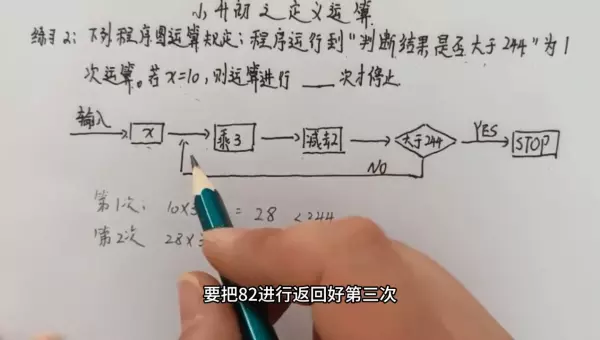 小升初之定义运算
练习2：下列程序图运算规定：程序运行到“判断结果是否大于244”为1
次运算。若x=10，则运算进行 ___ 次才停止
输入 x 乘3 减去2 大于244 YES STOP
NO
第1次： 10×3 = 28 <244
第2次 28×3
要把82进行返回好第三次